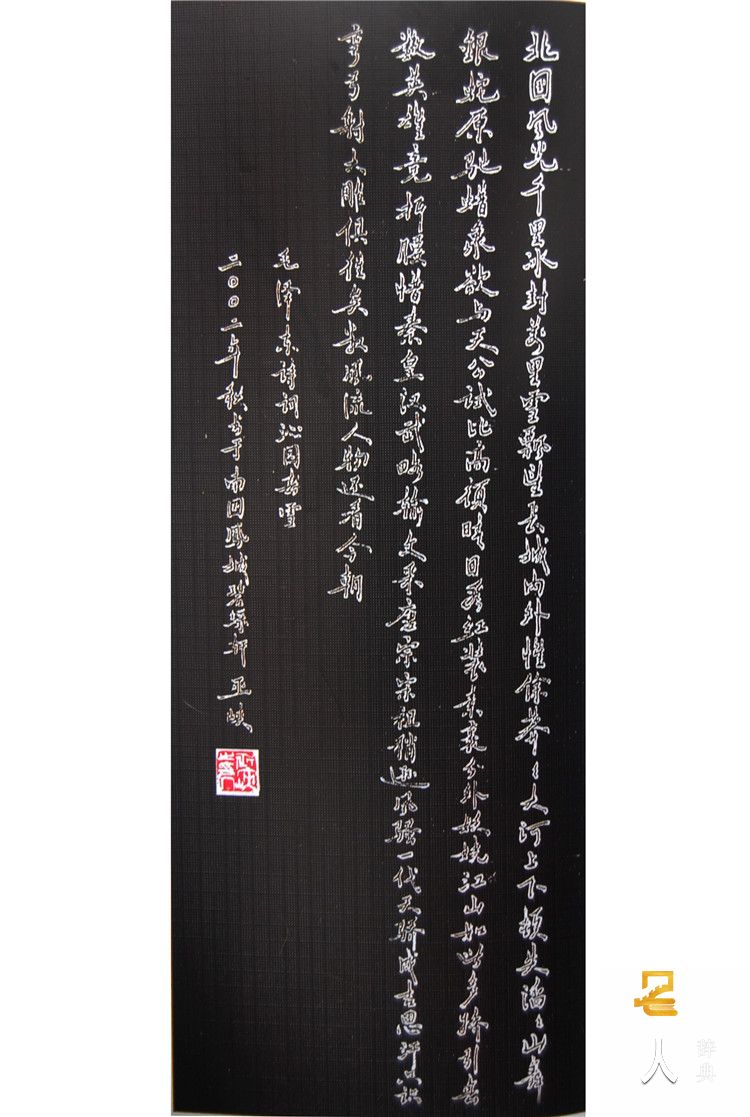 北国风光千里冰封萬里雪飄望長城内外惟餘莽〻大河上下頓失滔〻山舞
銀蛇原馳蜡象欲与天公試比高須晴日看紅装素裹分外妖嬈江山如此多嬌引無
數英雄竞折腰惜秦皇汉武略输文采唐宗宋祖稍逊风骚一代天骄成吉思汗只识
彎弓射大雕俱往矣数風流人物还看今朝
毛泽东诗词沁园春雪
二〇〇二年秋书于南国凤城
人
辞典